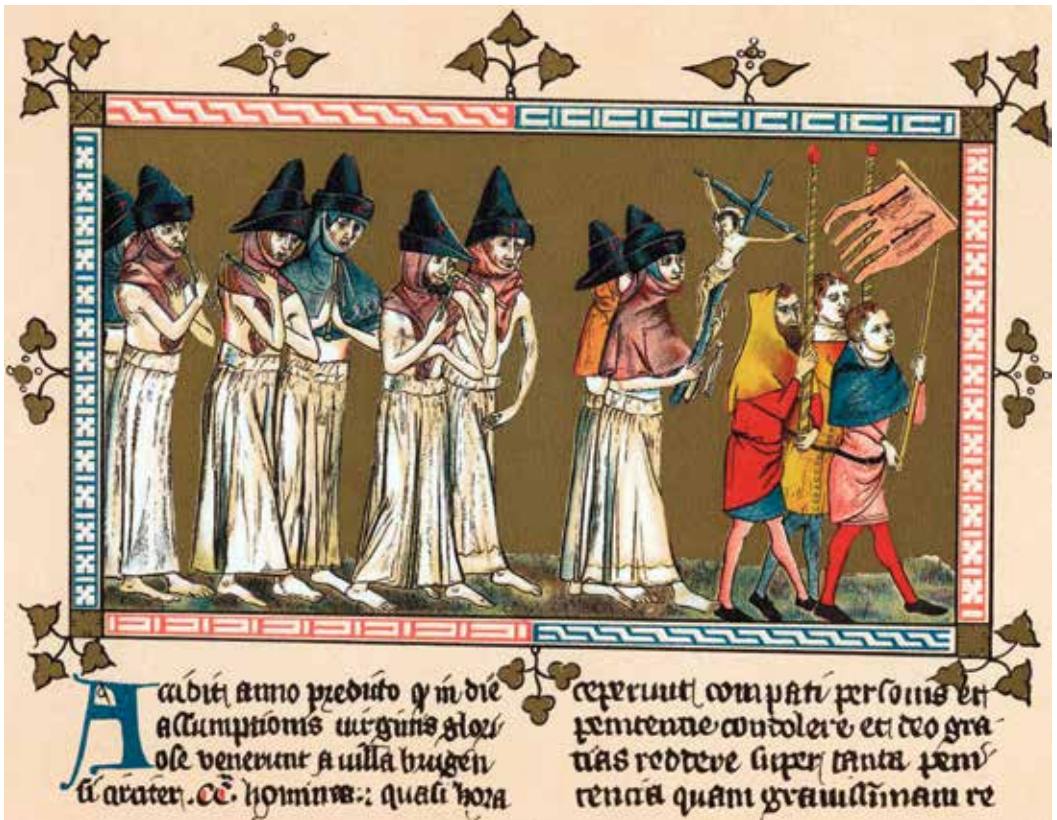 Accidit anno predicto q in die
assumptionis uirginis glori
ose venerunt a uilla brugen
si circiter .CC. homines: quasi hora
ceperunt compati personis et
penitencie condolere et deo gra-
tias reddere super tanta peni
tencia quam grauissimam re